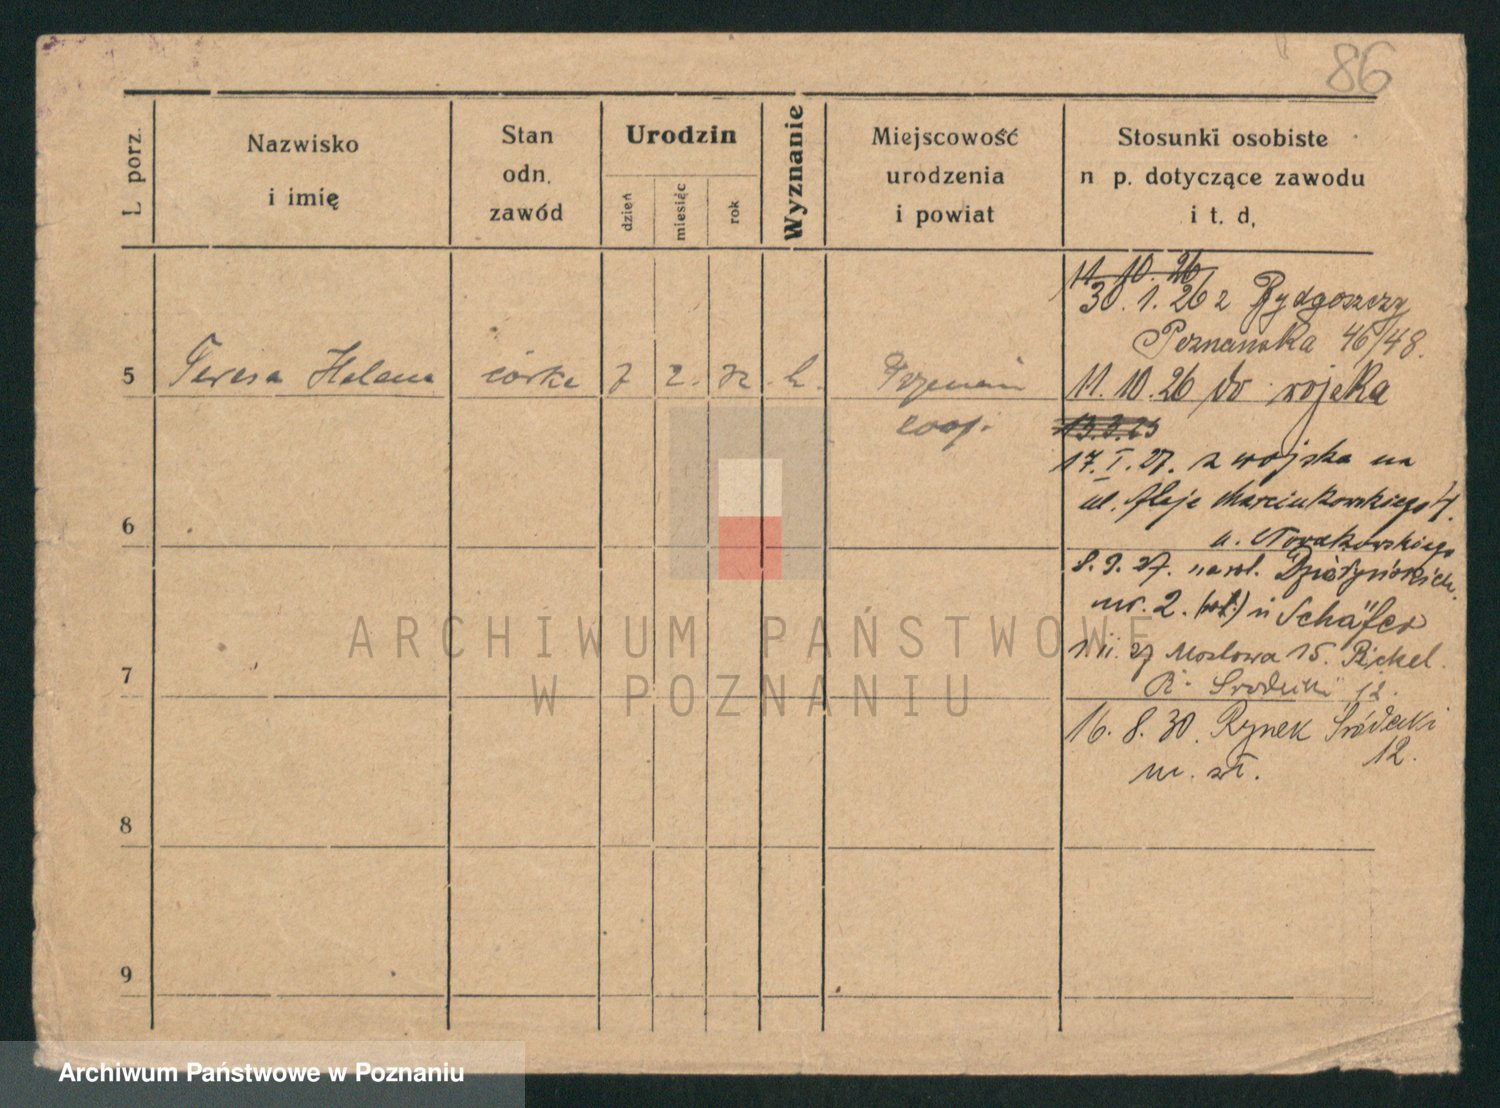 86
L porz.
Nazwisko
i imię
Stan
odn.
zawód
Urodzin
dzień
miesiąc
rok
Wyznanie
Miejscowość
urodzenia
i powiat
Stosunki osobiste
n p. dotyczące zawodu
i t. d.
11. 10. 26
30. 1. 26 z Bydgoszczy
Poznańska 46/48.
5 Teresa Helena córka 7 2. 32 k.
11. 10. 26 do wojska
13.3.23
17. I. 27. z wojska na
ul. Aleje Marcinkowskiego 7.
u. Nowakowskiego
6
8. 9. 27.
nr. 2. u Schäfer
1. II. 27 Mostowa 15.
7
R. Śródecki 12.
16. 8. 30. Rynek Śródecki
12.
m. st.
8
9
ARCHIWUM PAŃSTWOWE
W POZNANIU
Archiwum Państwowe w Poznaniu